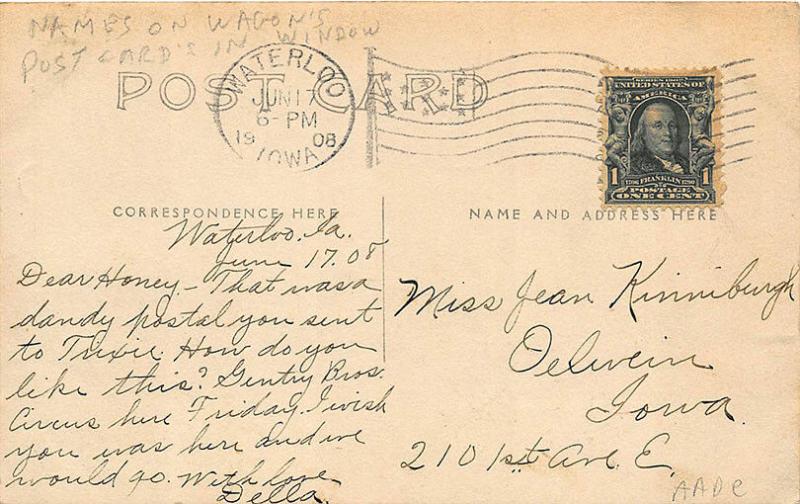 NAMES ON WAGON'S
POST CARD'S IN WINDOW
POST CARD
WATERLOO
JUN 17
6-PM
1908
IOWA
SERIES 1902
UNITED STATES OF
AMERICA
1 1706 FRANKLIN 1790 1
POSTAGE
ONE CENT
CORRESPONDENCE HERE
NAME AND ADDRESS HERE
Waterloo, Ia.
June 17. 08
Dear Honey - That was a
dandy postal you sent
to Trixie. How do you
like this? Gentry Bros.
Circus here Friday. I wish
you was here and we
would go. With love
Della.
Miss Jean Kinniburgh
Oelwein
Iowa.
210 1st Ave. E.
AADC